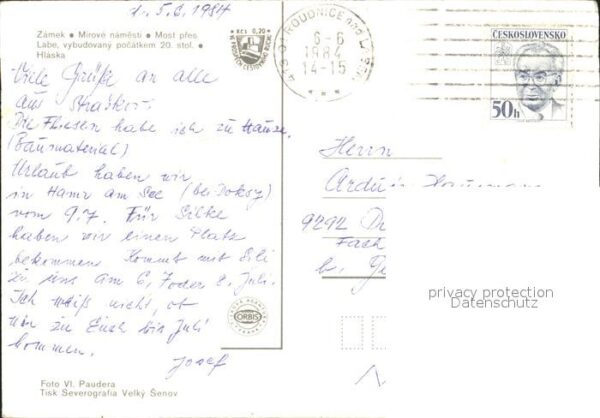 5.6.1984
Zámek • Mírové náměstí • Most přes
Labe, vybudovaný počátkem 20. stol. •
Hláska
Kčs 0,20
ROUDNICE nad LABEM
6-6
1984
14-15
ČESKOSLOVENSKO
50h
Viele Grüße an alle
aus Straškov.
Die Fliesen habe ich zu Hause.
(Baumaterial)
Urlaub haben wir
in Hamr am See (bei Doksy)
vom 9.7. Für Silke
haben wir einen Platz
bekommen. Kommt mit Sili
zu uns am 6, 7 oder 8. Juli.
Ich weiß nicht, ob
wir zu Euch bis Juli
kommen.
Josef
Herrn
9292
Fach
b.
privacy protection
Datenschutz
ORBIS
Foto Vl. Paudera
Tisk Severografia Velký Šenov